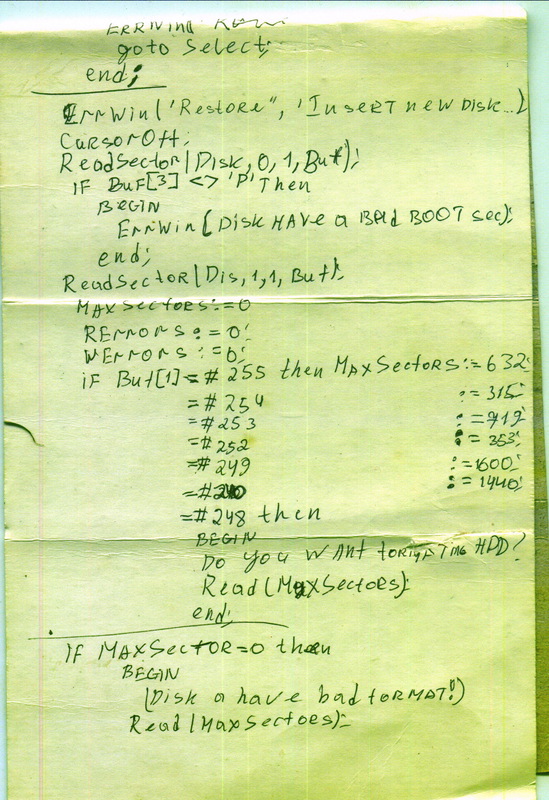 goto Select;
end;
ErrWin('Restore", 'Insert new Disk...)
CursorOff;
ReadSector(Disk,0,1,Buf);
IF BuF[3] <> 'P' Then
BEGIN
ErrWin(Disk HAVe a BAd BOOT sec);
end;
ReadSector(Dis,1,1,Buf);
MAXSectors:=0
RErrors:=0;
WErrors:=0;
if Buf[1]=#255 then MAXSectors:=632;
=#254 :=315;
=#253 :=719;
=#252 :=353;
=#249 :=1600;
:=1440;
=#248 then
BEGIN
Do you WANT HDD?
Read(MaxSectors);
end;
IF MAXSecTOR=0 then
BEGIN
(Disk a have bad forMAT!)
Read(MaxSectoes);